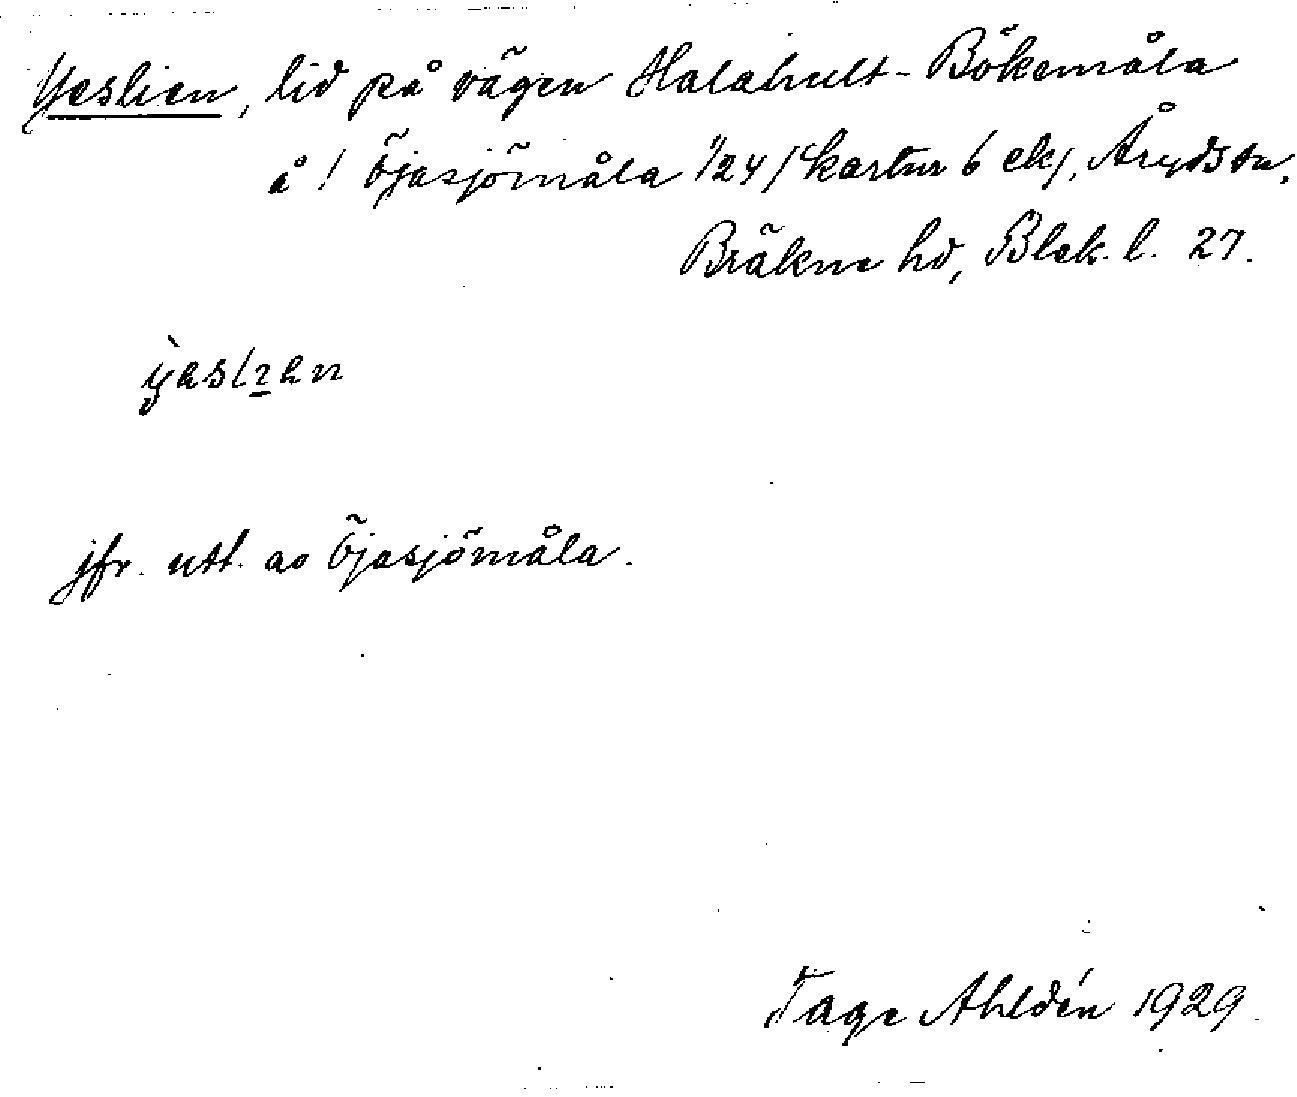 Yeslien, lid på vägen Halahult-Bökemåla
å ! Öjasjömåla 1/24 /kartnr 6 ek/, Åryds sn,
Bräkne hd, Blek. l. 27.
jfr. utt. av Öjasjömåla.
Tage Ahldén 1929